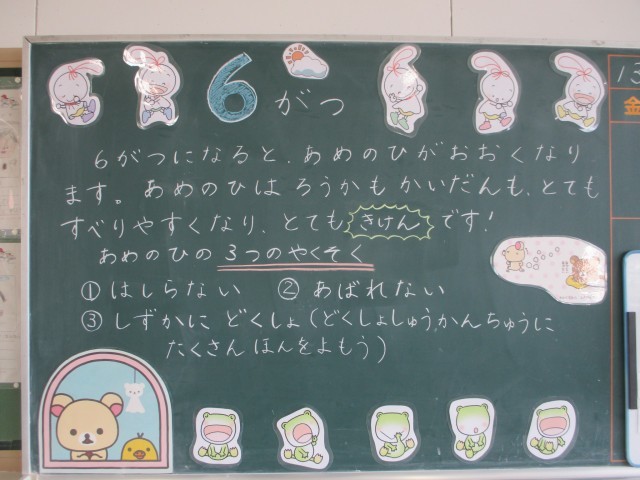 6がつ
13
金
6がつになると、あめのひがおおくなり
ます。あめのひは ろうかも かいだんも、とても
すべりやすくなり、とても きけん です!
あめのひの 3つのやくそく
① はしらない ② あばれない
③ しずかに どくしょ(どくしょしゅうかんちゅうに
たくさん ほんをよもう)